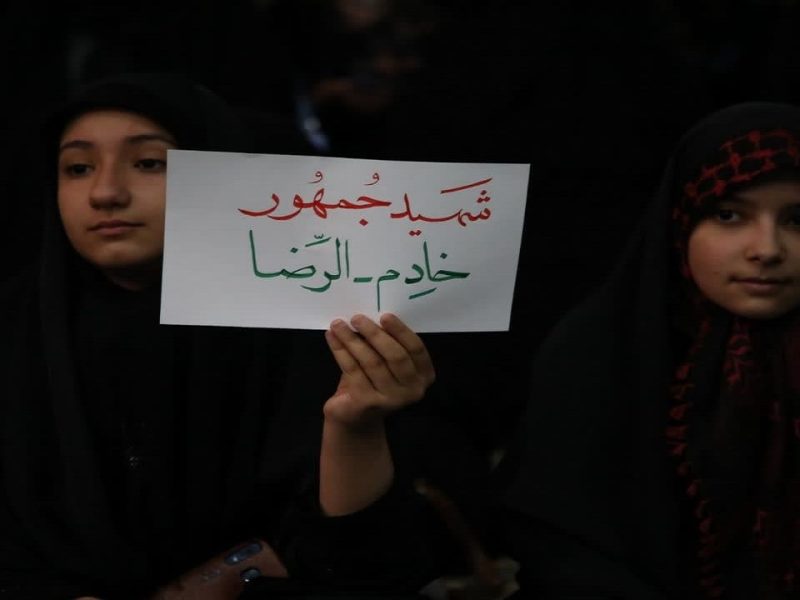 شهید جُمهُور
خادِم-الرِّضا